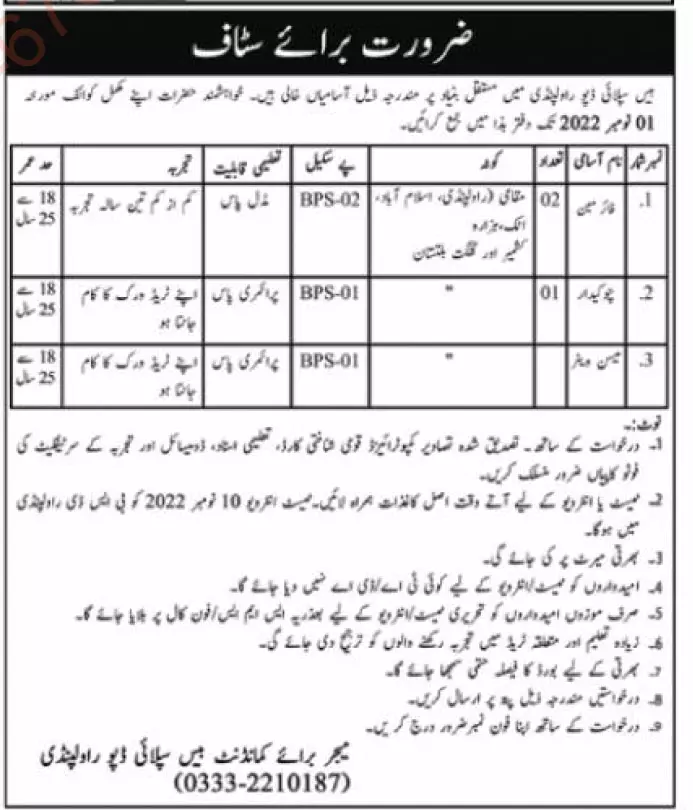 ضرورت برائے سٹاف
بیس سپلائی ڈپو راولپنڈی میں مستقل بنیاد پر مندرجہ ذیل آسامیاں خالی ہیں۔ خواہشمند حضرات اپنے مکمل کوائف مورخہ
01 نومبر 2022 تک دفتر ہذا میں جمع کرائیں۔
نمبر شمار نام آسامی تعداد کوٹہ پے سکیل تعلیمی قابلیت تجربہ حد عمر
1۔ فائرمین 02 مقامی (راولپنڈی، اسلام آباد، BPS-02 مڈل پاس کم از کم تین سالہ تجربہ 18 سے
اٹک، ہزارہ 25 سال
کشمیر اور گلگت بلتستان
2۔ چوکیدار 01 " BPS-01 پرائمری پاس اپنے ٹریڈ ورک کا کام 18 سے
جانتا ہو 25 سال
3۔ میس ویٹر " BPS-01 پرائمری پاس اپنے ٹریڈ ورک کا کام 18 سے
جانتا ہو 25 سال
نوٹ:۔
1۔ درخواست کے ساتھ۔ تصدیق شدہ تصاویر کمپوٹرائیزڈ قومی شناختی کارڈ، تعلیمی اسناد، ڈومیسائل اور تجربہ کے سرٹیفکیٹ کی
فوٹو کاپیاں ضرور منسلک کریں۔
2۔ ٹیسٹ یا انٹرویو کے لیے آتے وقت اصل کاغذات ہمراہ لائیں۔ ٹیسٹ انٹرویو 10 نومبر 2022 کو بی ایس ڈی راولپنڈی
میں ہوگا۔
3۔ بھرتی میرٹ پر کی جائے گی۔
4۔ امیدواروں کو ٹیسٹ/انٹرویو کے لیے کوئی ٹی اے/ڈی اے نہیں دیا جائے گا۔
5۔ صرف موزوں امیدواروں کو تحریری ٹیسٹ/انٹرویو کے لیے بذریعہ ایس ایم ایس/فون کال پر بلایا جائے گا۔
6۔ زیادہ تعلیم اور متعلقہ ٹریڈ میں تجربہ رکھنے والوں کو ترجیح دی جائے گی۔
7۔ بھرتی کے لیے بورڈ کا فیصلہ حتمی سمجھا جائے گا۔
8۔ درخواستیں مندرجہ ذیل پتہ پر ارسال کریں۔
9۔ درخواست کے ساتھ اپنا فون نمبر ضرور درج کریں۔
میجر برائے کمانڈنٹ بیس سپلائی ڈپو راولپنڈی
(0333-2210187)